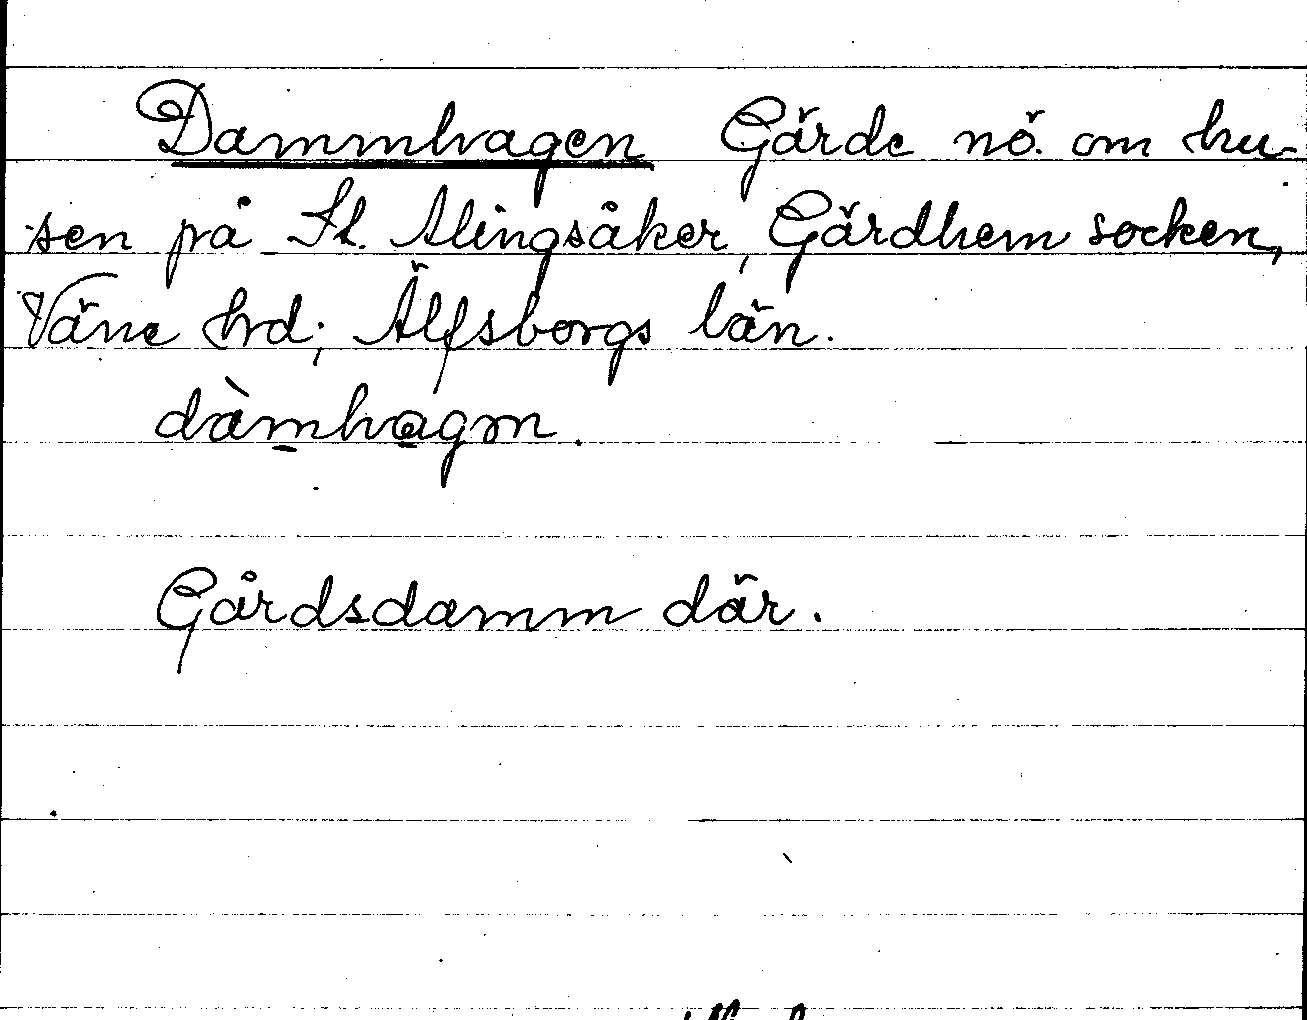 Dammhagen Gärde nö. om hu-
sen på St. Alingsåker, Gärdhem socken,
Väne hrd; Älfsborgs län.
dàmhagm.
Gårdsdamm där.